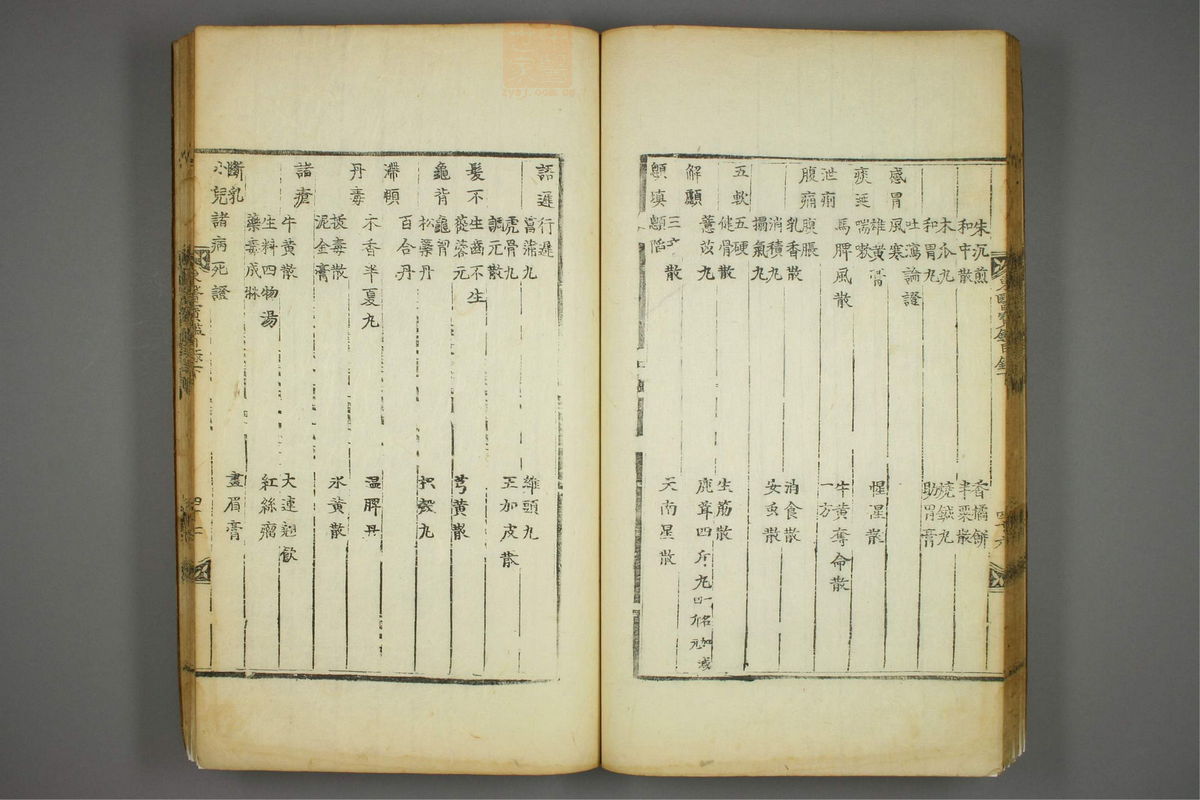 朱沉煎 香橘餠
和中散 半粟散
木瓜丸 燒鍼丸
和胃丸 助胃膏
吐瀉論證
感冒風寒 惺惺散
雄黃膏
痰涎喘嗽
馬脾風散 牛黃奪命散
泄痢 一方
腹痛腹脹
乳香散 消食散
消積丸 安虫散
搨氣丸
五軟五硬
健骨散 生筋散
薏苡丸 鹿茸四斤丸 一名加減四斤元
解顱
三辛散 天南星散
顖塡顖陷
語遲行遲
菖蒲丸 雞頭丸
虎骨丸 五加皮散
調元散
髮不生齒不生
蓯蓉元 芎黃散
龜背龜胸
松蘂丹 枳殼丸
百合丹
滯頤 溫脾丹
木香半夏丸
丹毒
拔毒散 氷黃散
泥金膏
諸瘡
牛黃散 大連翹飮
生料四物湯 紅絲瘤
藥毒成淋
斷乳 畫眉膏
小兒諸病死證